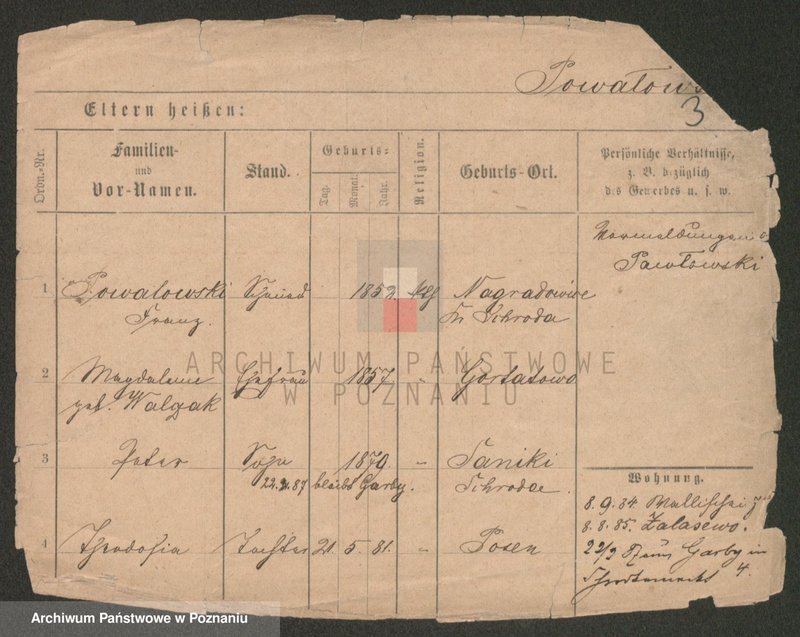 Powałows
3
Eltern heißen:
Ordn.-Nr.
Familien-
und
Vor-Namen.
Stand.
Geburts-
Tag.
Monat.
Jahr.
Religion.
Geburts-Ort.
Persönliche Verhältnisse,
z. B. bezüglich
des Gewerbes u. s. w.
Pawłowski
1 Powalowski 1852 Nagradowice
Franz. Kr Schroda
2 Magdalena Ehefrau 1857 " Gortatowo
geb. Walczak
3 Peter Sohn 1879 "
22. 87 bleibt Garby. Schroda.
4 Theodosia Tochter 21. 5. 81. " Posen
Wohnung.
8. 9. 84. Wallischei
8. 8. 85. Zalasewo.
Garby in
4.
ARCHIWUM PAŃSTWOWE
W POZNANIU
Archiwum Państwowe w Poznaniu